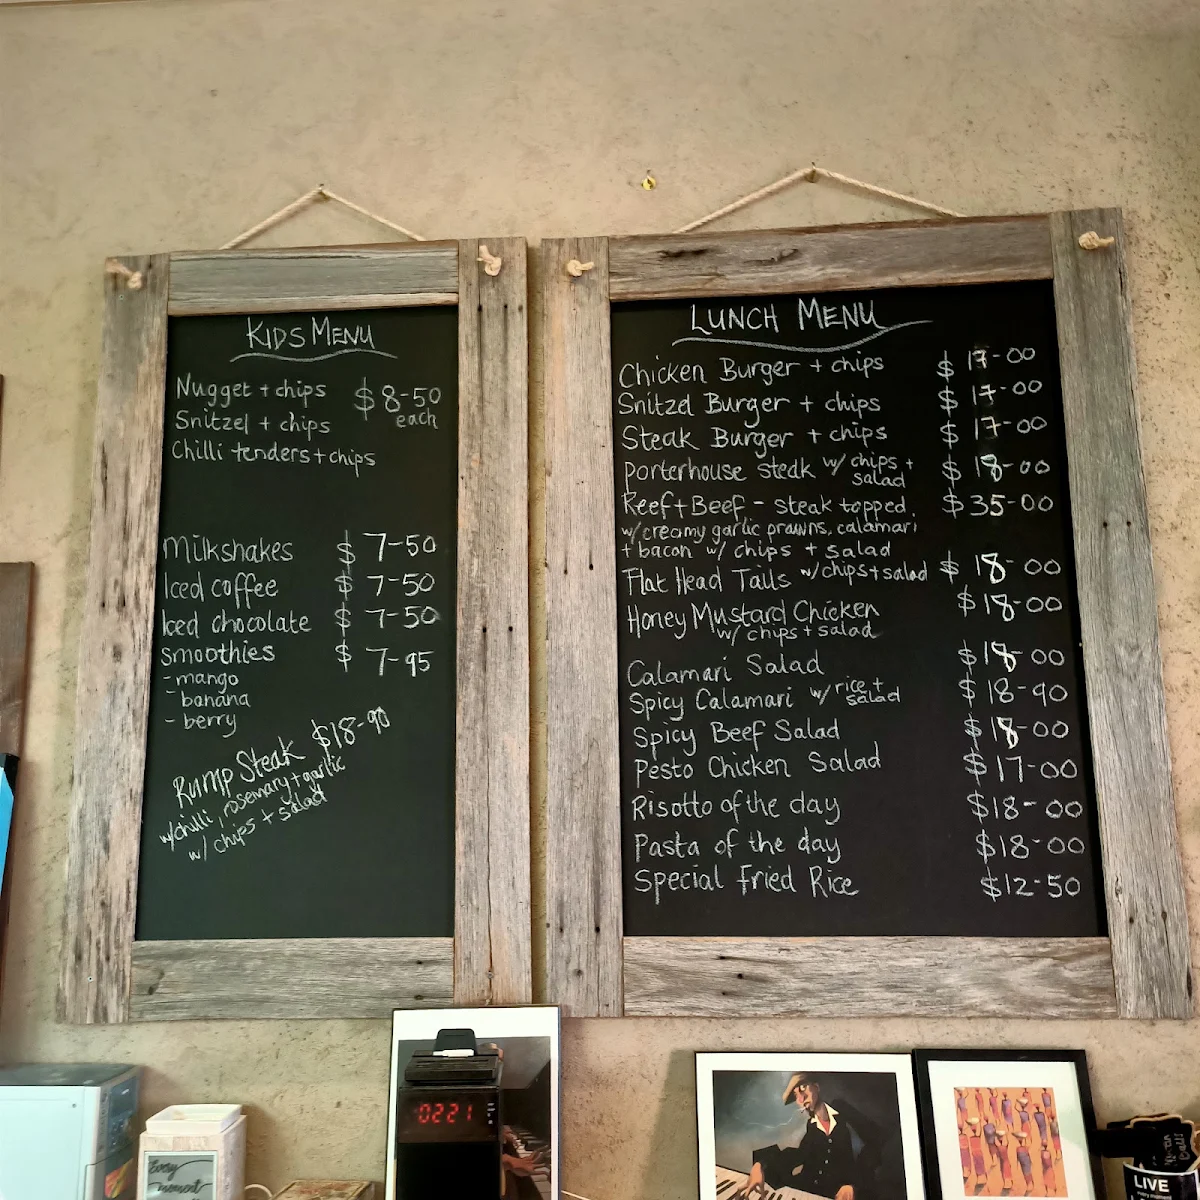 KIDS MENU
Nugget + chips $8-50
Snitzel + chips each
Chilli tenders + chips
Milkshakes $ 7-50
Iced coffee $ 7-50
Iced chocolate $ 7-50
Smoothies $ 7-95
- mango
- banana
- berry
Rump Steak $18-90
w/chilli, rosemary + garlic
w/ chips + salad
LUNCH MENU
Chicken Burger + chips $ 17-00
Snitzel Burger + chips $ 17-00
Steak Burger + chips $ 17-00
Porterhouse steak w/ chips + salad $ 18-00
Reef + Beef - steak topped $35-00
w/creamy garlic prawns, calamari
+ bacon w/ chips + salad
Flat Head Tails w/chips + salad $ 18-00
Honey Mustard Chicken $18-00
w/ chips + salad
Calamari Salad $18-00
Spicy Calamari w/ rice + salad $18-90
Spicy Beef Salad $18-00
Pesto Chicken Salad $17-00
Risotto of the day $18-00
Pasta of the day $18-00
Special Fried Rice $12-50
0221
Every
moment
LIVE